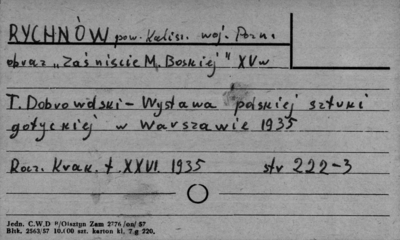 RYCHNÓW pow. Kalisz. woj. Pozn.
obraz „Zaśnięcie M. Boskiej" XVw
T. Dobrowolski - Wystawa polskiej sztuki
gotyckiej w Warszawie 1935
Rocz. Krak. t. XXVI. 1935 str 222-3
Jedn. C.W.D Olsztyn Zam 2776/on/57
Bltk. 2563/57 10.000 szt. karton kl. 7 g 220.